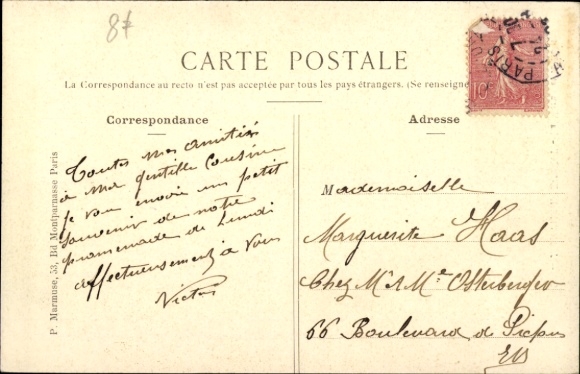 87
CARTE POSTALE
La Correspondance au recto n'est pas acceptée par tous les pays étrangers. (Se renseigne
Correspondance
Adresse
Toutes mes amitiés
à ma gentille Cousine
je vous envoie un petit
souvenir de notre
promenade de Lundi
affectueusement à vous
Victor
P. Marmuse, 53, Bd Montparnasse Paris
Mademoiselle
Marguerite Haas
Chez Mr & Me Osterberger
66 Boulevard de Picpus
EV
PARIS
10